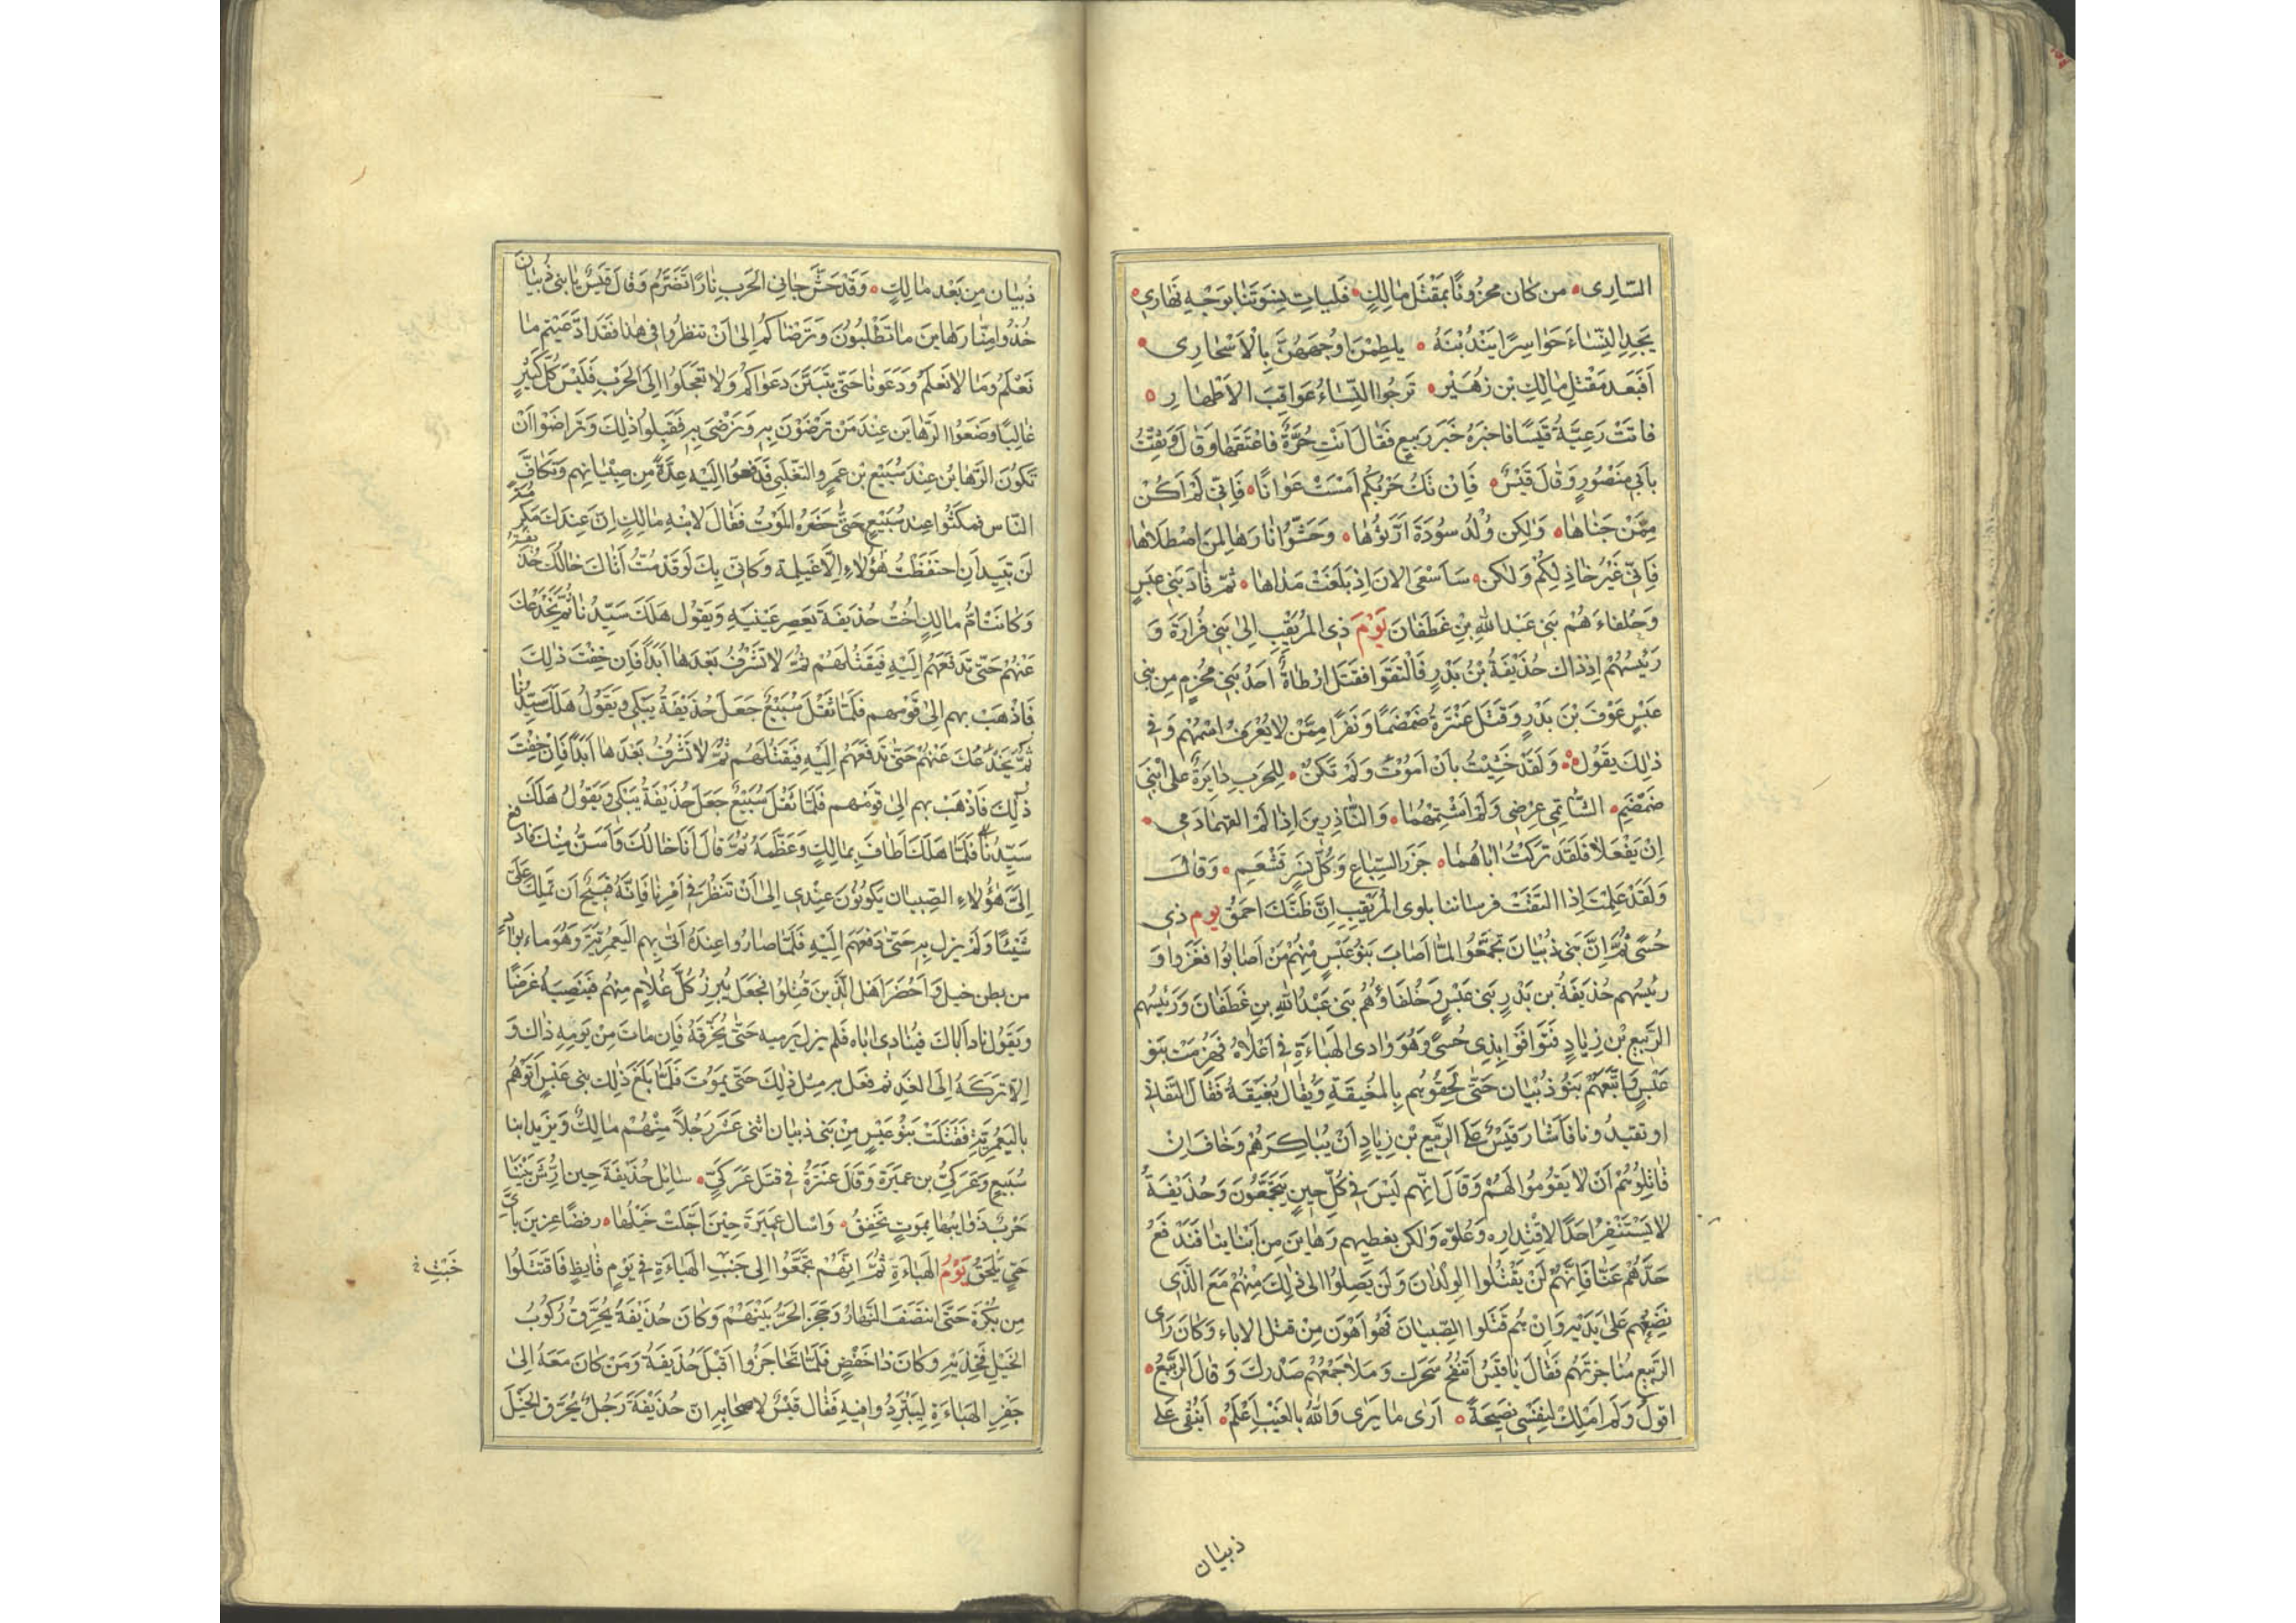 السّارِى من كان محزونًا بمَقتَل مالِكٍ فَليَاتِ نِسوَتَنا بوَجْهِ نَهارِى
يَجِدِ النِّسَاءَ حَوَاسِرًا يَنْدُبْنَهُ يلطِمْنَ اوْجُهَهُنَّ بِالْاَسْحَارِى
اَفبَعد مَقْتَلِ مٰالِكِ بن زُهَيْرٍ تَرجُوا النِّسَاءُ عَوَاقِبَ الاَطْهَارِ
فاتَتْ رَعِيَّةُ قَيْسًا فاخبَرَهُ خَبَرَ رَبيعٍ فَقَالَ اَنْتِ حُرَّةٌ فاعْتَقَها وَقٰالَ وَثِقْتُ
بأَبِى مَنْصُورٍ وَقٰالَ قَيْسٌ فَاِنْ تَكُ حَرْبُكُم اَمْسَتْ عَوانًا فَاِنّى لَمْ اَكُنْ
مِمَّنْ جَنٰاهٰا وَلٰكِن وُلْدُ سَودَةَ اَرَّثُوهٰا وَحَشُّوا نارَهٰا لِمَنِ اصْطَلاهٰا
فَاِنّى غَيْرُ خاذِلِكُمْ وَلٰكن سَاَسْعَى الانَ اِذ بَلَغَتْ مَدٰاهٰا ثمّ قادَ بَنِى عَبسٍ
وَحُلفاءَهُمْ بَنِى عَبدِ اللّٰهِ بْنِ غَطَفَانَ يَوْمَ ذِى المُرَيْقِبِ اِلىٰ بَنِى فُزارَةَ وَ
رَئيسُهُمْ اِذ ذاكَ حُذَيْفَةُ بْنُ بَدْرٍ فَالْتَقَوَا فَقَتَلَ اَرْطاةُ اَحَدُ بَنِى مخُزومٍ مِن بنى
عَبْسٍ عَوْفَ بْنَ بَدْرٍ وَقَتَلَ عَنْتَرَةُ ضَمْضَمًا وَنَفَرًا مِمَّنْ لايُعْرَفُ اسْمُهُم وَفِى
ذٰلِكَ يَقُولُ وَلَقَدْ خَشِيْتُ بِاَنْ اَمُوْتَ وَلَمْ تَكُنْ لِلحَربِ دايَرَةٌ على ابْنَى
ضَمْضَمِ الشّاتِمَى عِرضِى وَلَم اَشْتِمهُمٰا وَالنّاذِرِينَ اِذا لَم القهما دَمى
اِنْ يَفْعَلا فَلَقَد تَركْتُ اَباهُمٰا جَزَرَ السِّباعِ وَكُلّ نَسرٍ قَشْعَمِ وَقالَ
وَلَقَدْ عَلِمْتَ اِذَا التَقَتْ فرساننا بلوى المُرَيْقِبِ اِنَّ ظَنَّكَ احَمَقُ يوم ذى
حُسًى ثُمَّ اِنَّ بَنِى ذُبْيَانَ تَجَمَّعُوا لمّا اَصَابَ بَنُو عَبْسٍ مِنْهُمْ مَنْ اَصَابُوا فَغَزَوا وَ
رئيسُهم حُذَيفَةُ بن بَدْرٍ بَنى عَبْسٍ وَحُلَفَاؤُهُم بَنى عَبْدُ اللّٰهِ بنِ غَطَفَانَ وَرَئيسُهم
الرَّبيعُ بْنُ زِيادٍ فَتَوَافَوَا بِذِى حُسًى وَهُوَ وَادى الهَبَاءَةِ فِى اَعْلاهُ فَهَزِمَتْ بَنو
عَبْسٍ وَاتَّبَعَهُمْ بَنُو ذُبْيَان حَتّى لَحِقُوهُم بِالمُغيقَةِ وَيُقٰالُ بُغَيقَةُ فَقٰالَ التَّفانِى
او تقيدُونا فَاَشارَ قَيْسٌ عَلَى الرَّبيع بْنِ زِيادٍ اَنْ يُبٰاكِرَهُمْ وَخَافَ اِنْ
قاتَلُوهُمْ اَنْ لا يَقُومُوا لَهُمْ وَقٰالَ اِنَّهم لَيْسَ فِى كُلِّ حِينٍ يَتَجَمَّعُونَ وَحُذَيْفَةُ
لا يَسْتَنْفِرُ احَدًا لاِقْتِدارِهِ وَعُلوِّه وَلٰكِن نعْطِيهِم رَهٰايِنَ مِن اَبْنَايِنٰا فَنَدْفَعُ
حَدَّهُم عَنّا فَاِنَّهُم لَنْ يَقْتُلُوا الوِلْدانَ وَلَن يَصِلُوا الى ذٰلِكَ مِنْهُمْ مَعَ الَّذى
نَضَعُهم عَلىٰ يَدَيْهِ وَاِنْ هُم قَتَلُوا الصِّبيانَ فَهُوَ اَهْوَن مِنْ قتل الاباءِ وَكانَ رَاى
الرَّبِيع مُنٰاجِزَتَهُم فَقَالَ يٰا قَيْسُ اَتَنْفُخُ سَحَرك وَمَلَا جَمْعُهُم صَدْركَ وَقالَ الرَّبِيْعُ
اقولُ وَلَم اَمْلِكْ لِنَفْسِى نَصِيحَةً اَرَى مٰا يَرٰى وَاللّٰهُ بِالغَيْبِ اَعْلَمُ اَنُبْقِى عَلىٰ
ذبيان
ذُبيَان مِن بَعْد مَالِكٍ وَقَدْ حَشَّ جٰانِى الحَربِ نٰارًا تَضَرَّمُ وَقٰالَ قَيْسٌ يا بنى ذُبيانَ
خُذُوا مِنّا رَهايِنَ ما تَطْلُبُونَ وَنَرضٰاكُم اِلىٰ اَنْ تنظرُوا فِى هٰذا فَقَد ادَّعَيْتم مٰا
نَعْلَمُ وَمٰا لا نَعلَمُ وَدَعَونا حَتّى تَتَبَيَّنَ دَعْوَاكُم وَلا تَعْجَلُوا اِلَى الحَرْبِ فَلَيْسَ كُلّ كَثيرٍ
غالِبًا وضَعُوا الرَّهايِنَ عِنْدَ مَنْ تَرضَوْنَ بِهِ وَنَرْضٰى بِهِ فَقَبِلُوا ذٰلِكَ وَتَرَاضَوْا اَنْ
تَكُونَ الرَّهايِنُ عِنْدَ سُبَيْعِ بن عَمرٍو التغلَبى فَدَفَعُوا اِلَيْهِ عِدَّةً مِن صِبْيٰانِهم وَتَكافَّ
النّاس فمكَثُوا عِندَ سُبَيْعٍ حَتّى حَضَرَهُ المَوْتُ فَقَالَ لابْنِهِ مٰالِكٍ اِنَّ عِندَكَ مَكرمَةً
لَن تَبِيدَ اَنِ احتَفَظْتَ هٰؤُلاءِ الاُغَيلِمة وَكاَنّى بِكَ لَو قَد مُتُّ اَتاكَ خٰالُكَ حُذَيفَةُ
وَكانَتْ اُمُّ مالِكٍ اُخْتُ حُذَيفَةَ يَعصِر عَيْنَيهِ وَيَقُول هَلَكَ سَيِّدُنٰا ثُمَّ يَخْدَعكَ
عَنْهُمْ حَتّى تَدفَعَهُم اِلَيْهِ فَيَقتُلَهُمْ ثُمَّ لا تَشْرُفُ بَعْدَهٰا اَبَدًا فَاِن خِفْتَ ذٰلِكَ
فَاذْهَبْ بِهم اِلىٰ قَوْمِهِم فَلَمّا ثَقُلَ سُبَيْعٌ جَعَلَ حُذَيْفَةُ يَبكِى وَيَقُولُ هَلَكَ سَيِّدُنٰا
ثُمَّ يَخْدَعُكَ عَنْهُمْ حَتّى تَدفَعَهُم اِلَيْهِ فيَقتُلَهُم ثُمَّ لا تَشْرُفُ بَعْدَهٰا اَبَدًا فَاِنْ خِفْتَ
ذٰلِكَ فَاذْهَبْ بِهم اِلىٰ قومِهم فَلَمّا ثَقُلَ سُبَيْعٌ جَعَلَ حُذَيْفَةُ يَبْكى وَيَقُولُ هَلَكَ
سَيِّدُنٰا فَلَمّا هَلَكَ اَطافَ بِمٰالِكٍ وَعَظَّمَهُ ثُمَّ قالَ اَنَا خالُكَ وَاَسَنُّ مِنْكَ فادفع
اِلَىَّ هٰؤُلاءِ الصِّبيان يَكونُونَ عِنْدِى اِلىٰ اَنْ تَنظُرَ فِى اَمْرِنا فَاِنَّهُ قَبيحٌ اَن تَملِكَ عَلَىَّ
شَيْئًا وَلَم يزل بِهِ حَتّى دَفَعَهُم اِلَيْهِ فَلَمّا صارُوا عِندَهُ اَتىٰ بِهم اليَعْمُرِيَّةَ وَهُوَ ماء بوادٍ
من بطن نخيل وَاَحْضَرَ اَهْلَ الَّذينَ قُتِلُوا فَجَعَلَ يُبرِزُ كُلَّ غُلامٍ مِنْهُم فَيَنصِبُهُ غَرَضًا
وَيَقُولُ نادِ اَباكَ فَيُنٰادِى اَباهُ فَلم يزل يَرميه حَتّى يُخَرّقَهُ فَاِن مٰاتَ مِنْ يَوْمِهِ ذاك وَ
اِلّا تَرَكَهُ اِلَى الغَدِ ثم فعَل بِهِ مِثلَ ذٰلِكَ حَتّى يَمُوتَ فَلَمّا بَلَغَ ذٰلِكَ بنى عَبْسٍ اَتوهُم
باليَعمُرِيَّةِ فَقَتَلَتْ بَنُو عَبْسٍ مِنْ بَنى ذبيانَ اثنى عَشَرَ رَجُلًا مِنْهُمْ مٰالِكٌ وَيَزيد ابنا
سُبَيعٍ وَعَركِىُّ بن عميرَة وَقٰالَ عَنتَرَةُ فِى قتلِ عَركِىٍّ سائِل حُذَيفَةَ حِين ارَّشَ بَيْنَنا
حَرْبٌ ذَوَايبُهٰا بِمَوتٍ تَخفِقُ وَاسْال عَمِيرَةَ حِيْنَ اَجْلَبَتْ خَيْلُهٰا رفضًا عِزِينَ باَىّ
حَىٍّ تَلحَقُ يَوْمُ الهَبَاءَةِ ثُمَّ اِنَّهُمْ تَجَمَّعُوا الى جَنْبِ الهَبَاءَةِ فِى يَوْمٍ قايِظٍ فَاقتَتَلُوا
خَبْثِ
مِن بُكْرَة حَتَّى انتَصَفَ النَّهارُ وَحَجَزَ الحَرُّ بَيْنَهُمْ وَكانَ حُذَيْفَةُ يُحَرِّقُ رُكُوبُ
الخَيْلِ فَخِذَيْهِ وَكانَ ذا خَفضٍ فَلَمّا تَحاجَزُوا اَقْبَلَ حُذَيفَةُ وَمَنْ كانَ مَعَهُ اِلىٰ
جَفْرِ الهَبَاءَةِ لِيَتْبَرَّدُوا فِيهِ فَقٰالَ قَيْسٌ لاصحَابِهِ اِنَّ حُذَيْفَةَ رَجُلٌ يُحَرِّقُ الخَيْلَ